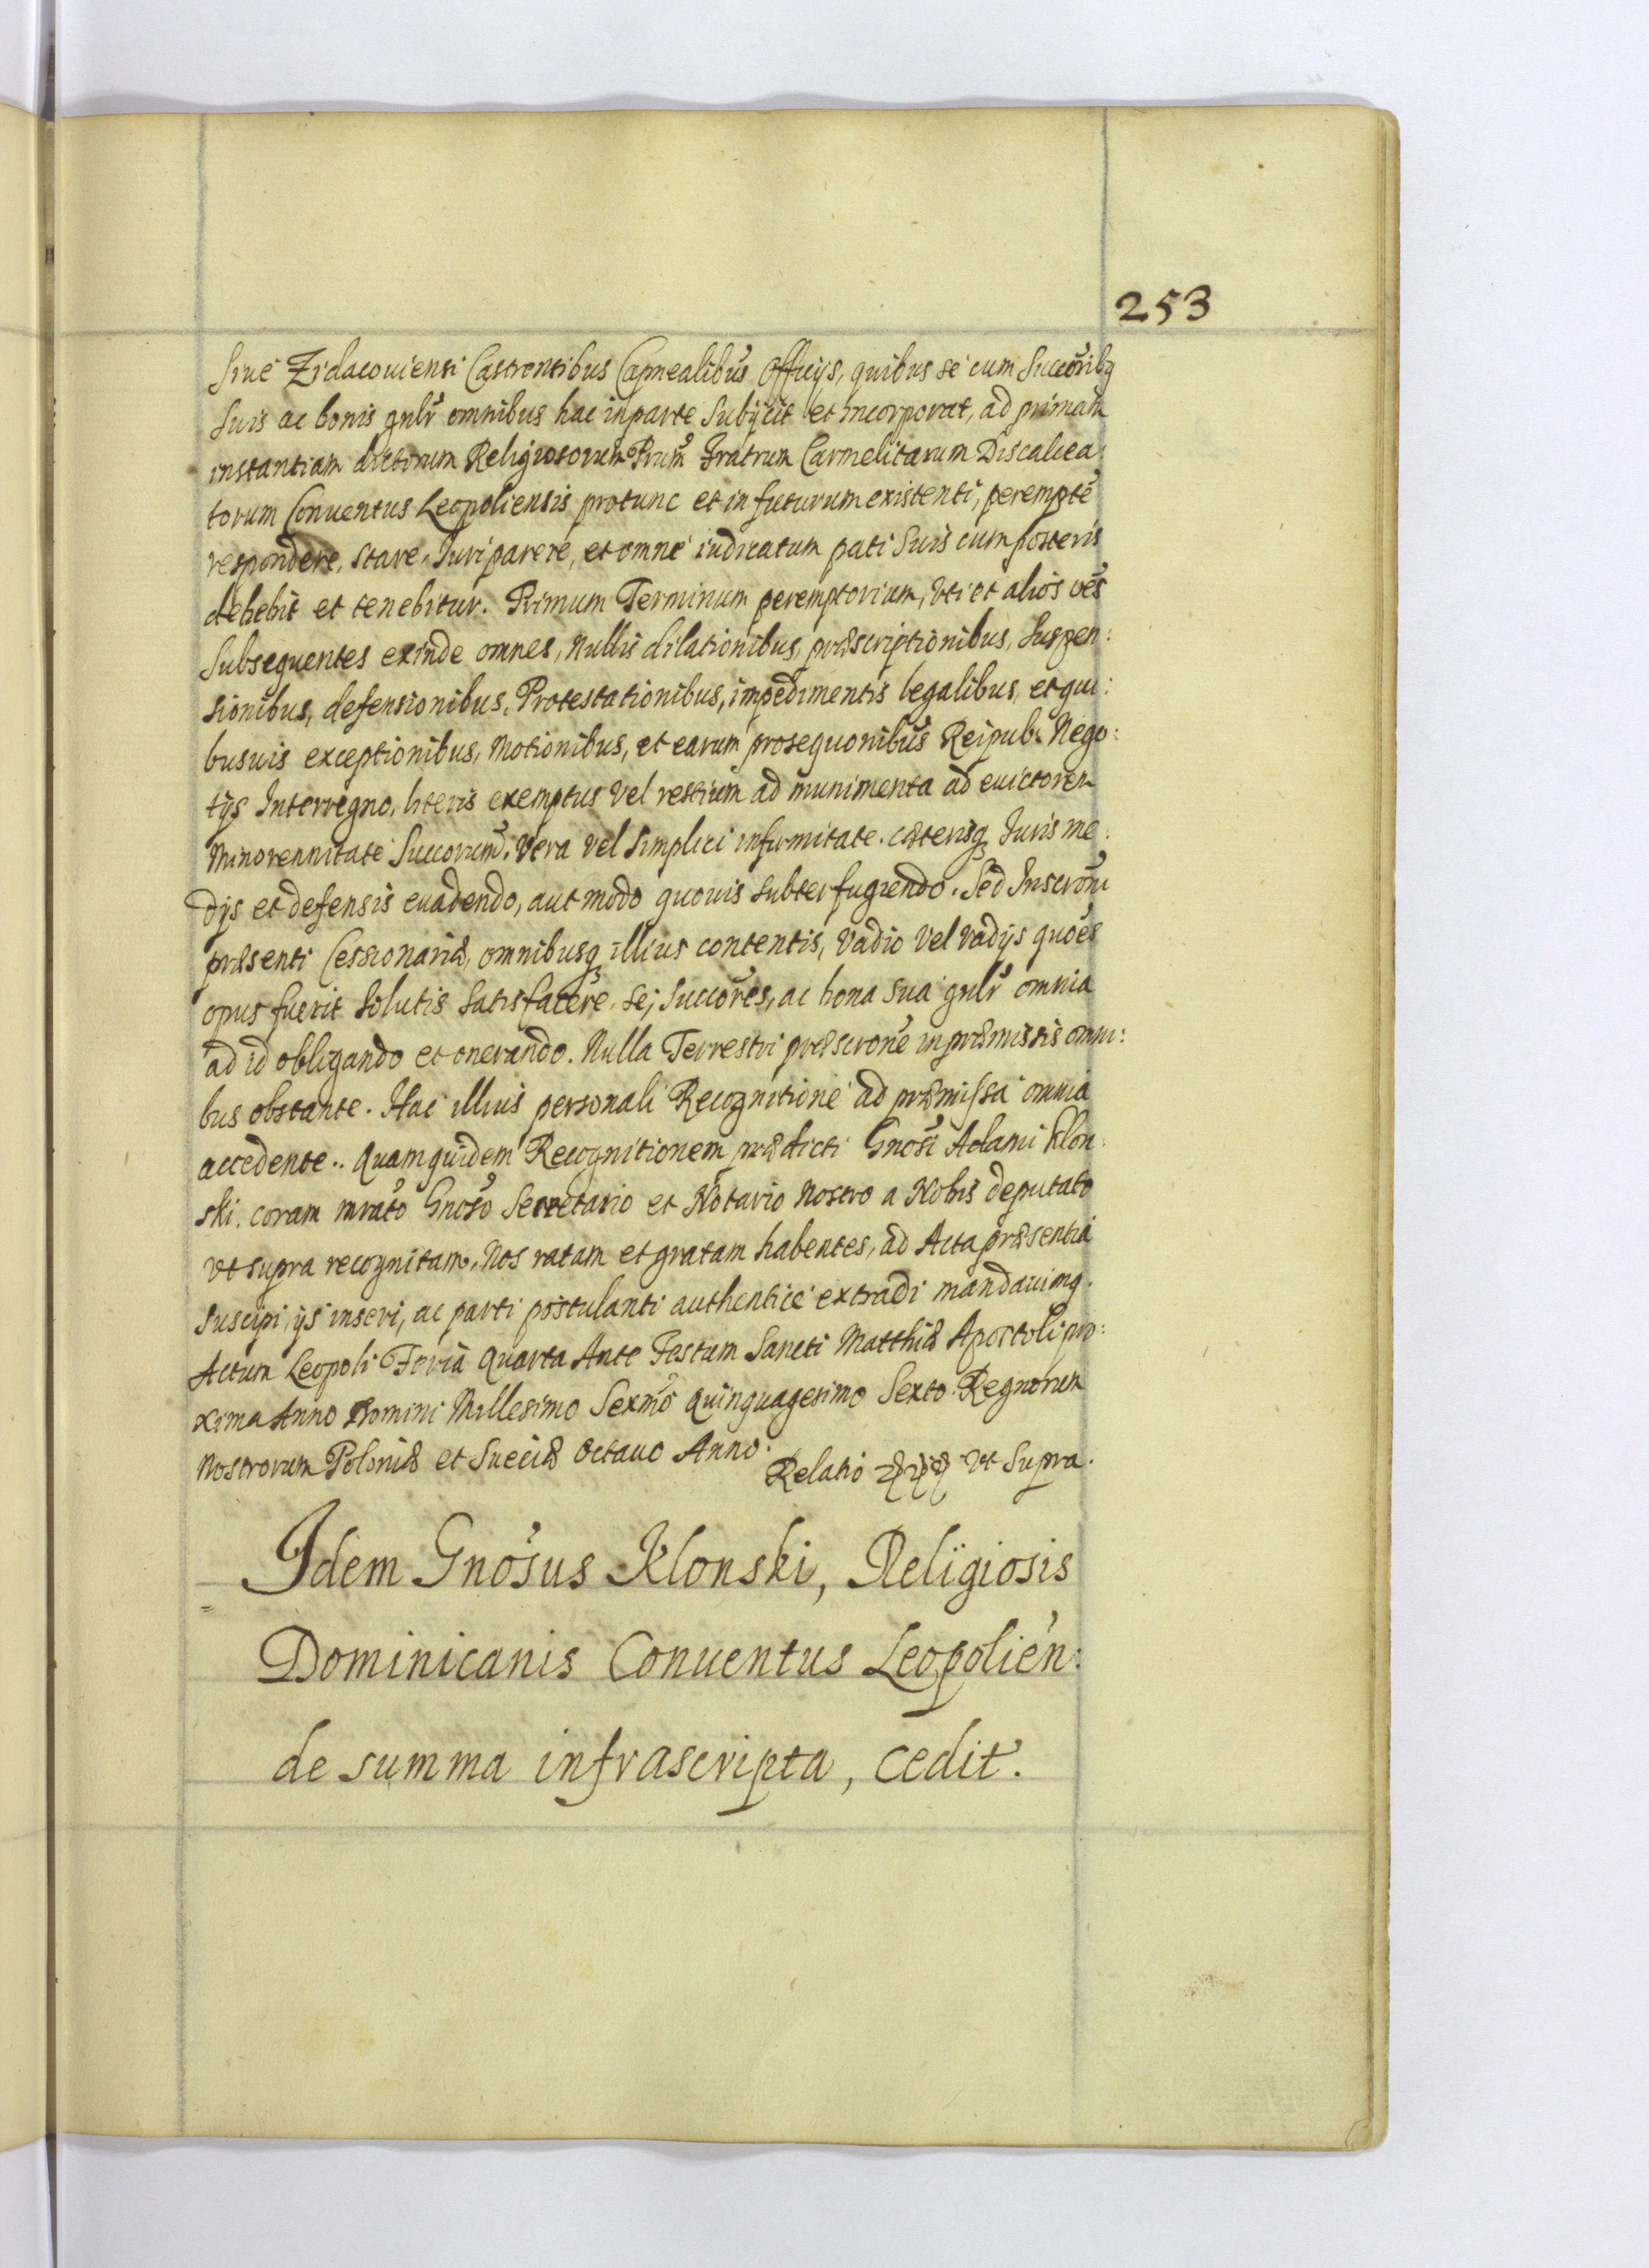 253
Siué Zidacouiensi Castrensibus Capnealibus Officijs, quibus sé cum Succorib9
Suis ac bonis gnlr omnibus hac in parte Subijcit et incorporat, ad primam
instantiam dictorum Religiosorum Prum Fratrum Carmelitarum Discalcea:
torum Conuentus Leopoliensis protunc et in futurum existenti, peremptè
respondere, stare, Iuri parere, et omné iudicatum pati Suis cum posteris
debebit et tenebitur. Primum Terminum peremptorium, Vti et alios oes
Subsequentes exinde omnes, Nullis dilationibus, præscriptionibus, Suspen:
sionibus, defensionibus, Protestationibus, impedimentis legalibus, et qui:
busuis exceptionibus, Motionibus, et earum prosequonibus Reipub. Nego:
tijs Interregno, literis exemptus Vel restium ad munimenta ad euictorem
Minorennitate Succorum, Vera Vel Simplici infirmitate. cæterisq Iuris me:
dijs et defensis euadendo, aut modo quouis subterfugiendo. Sed Inscroni
præsenti Cessionariæ, omnibusq illius contentis, Vadio Vel Vadijs quoes
opus fuerit Solutis Satisfacere. Se, Succores, ac bona Sua gnlr omnia
ad id obligando et onerando. Nulla Terrestri præscrone in præmissis omni:
bus obstante. Hac illius personali Recognitioné ad præmissa omnia
accedente.. Quamquidem Recognitionem prædicti Gnosi Adami Klon:
ski. coram mrato Gnoso Secretario et Notario Nostro a Nobis deputato
vt supra recognitam, Nos ratam et gratam habentes, ad Acta præsentia
Suscipi, ijs inseri, ac parti postulanti authenticé extradi mandauim9.
Actum Leopoli Feria Quarta Ante Festum Sancti Matthiæ Apostoli pro:
xima Anno Domini Millesimo Sexmo Quinquagesimo Sexto. Regnorum
Nostrorum Poloniæ et Sueciæ Octauo Anno.
Relatio vt Supra.
Idem Gnosus Klonski, Religiosis
Dominicanis Conuentus Leopolien:
de summa infrascripta, cedit.